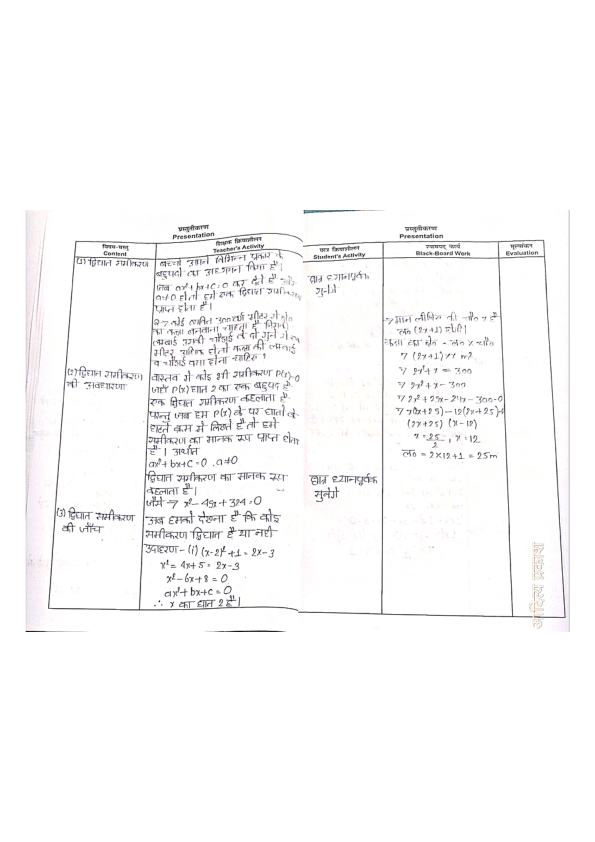 प्रस्तुतीकरण
Presentation
विषय-वस्तु
Content
शिक्षक क्रियाशीलन
Teacher's Activity
(1) द्विघात समीकरण
बच्चों आपने विभिन्न प्रकार के
बहुपदों का अध्ययन किया है।
जब ax²+bx+c=0 कर देते हैं और
a≠0 हो तो हमें एक द्विघात समीकरण
प्राप्त होता है।
कोई व्यक्ति 300 वर्ग मीटर में
का कक्ष बनवाना चाहता है जिसकी
लम्बाई उसकी चौड़ाई के दो गुने से एक
मीटर अधिक हो तो कक्ष की लम्बाई
व चौड़ाई क्या होना चाहिए।
(2) द्विघात समीकरण
की अवधारणा
वास्तव में कोई भी समीकरण P(x)=0
जहाँ P(x) घात 2 का एक बहुपद है
एक द्विघात समीकरण कहलाता है
परन्तु जब हम P(x) के पद घातों के
घटते क्रम में लिखते हैं तो हमें
समीकरण का मानक रूप प्राप्त होता
है। अर्थात
ax²+bx+c=0, a≠0
द्विघात समीकरण का मानक रूप
कहलाता है।
जैसे → x²-45x+324=0
(3) द्विघात समीकरण
की जाँच
अब हमको देखना है कि कोई
समीकरण द्विघात है या नहीं
उदाहरण - (i) (x-2)²+1 = 2x-3
x² = 4x+5 = 2x-3
x²-6x+8 = 0
ax²+bx+c = 0
∴ x का घात 2 है।
प्रस्तुतीकरण
Presentation
छात्र क्रियाशीलन
Student's Activity
श्यामपट्ट कार्य
Black-Board Work
मूल्यांकन
Evaluation
छात्र ध्यानपूर्वक
सुनेंगे
→ माना लीजिए की चौ० x है
ल० (2x+1) होगी।
कक्ष का क्षे० = ल० × चौ०
→ (2x+1)x m²
→ 2x²+x = 300
→ 2x²+x-300
→ 2x²+25x-24x-300=0
→ x(2x+25)-12(2x+25)=0
(2x+25) (x-12)
x = 25/2, x = 12
ल० = 2×12+1 = 25m
छात्र ध्यानपूर्वक
सुनेंगे
आदित्य प्रकाश